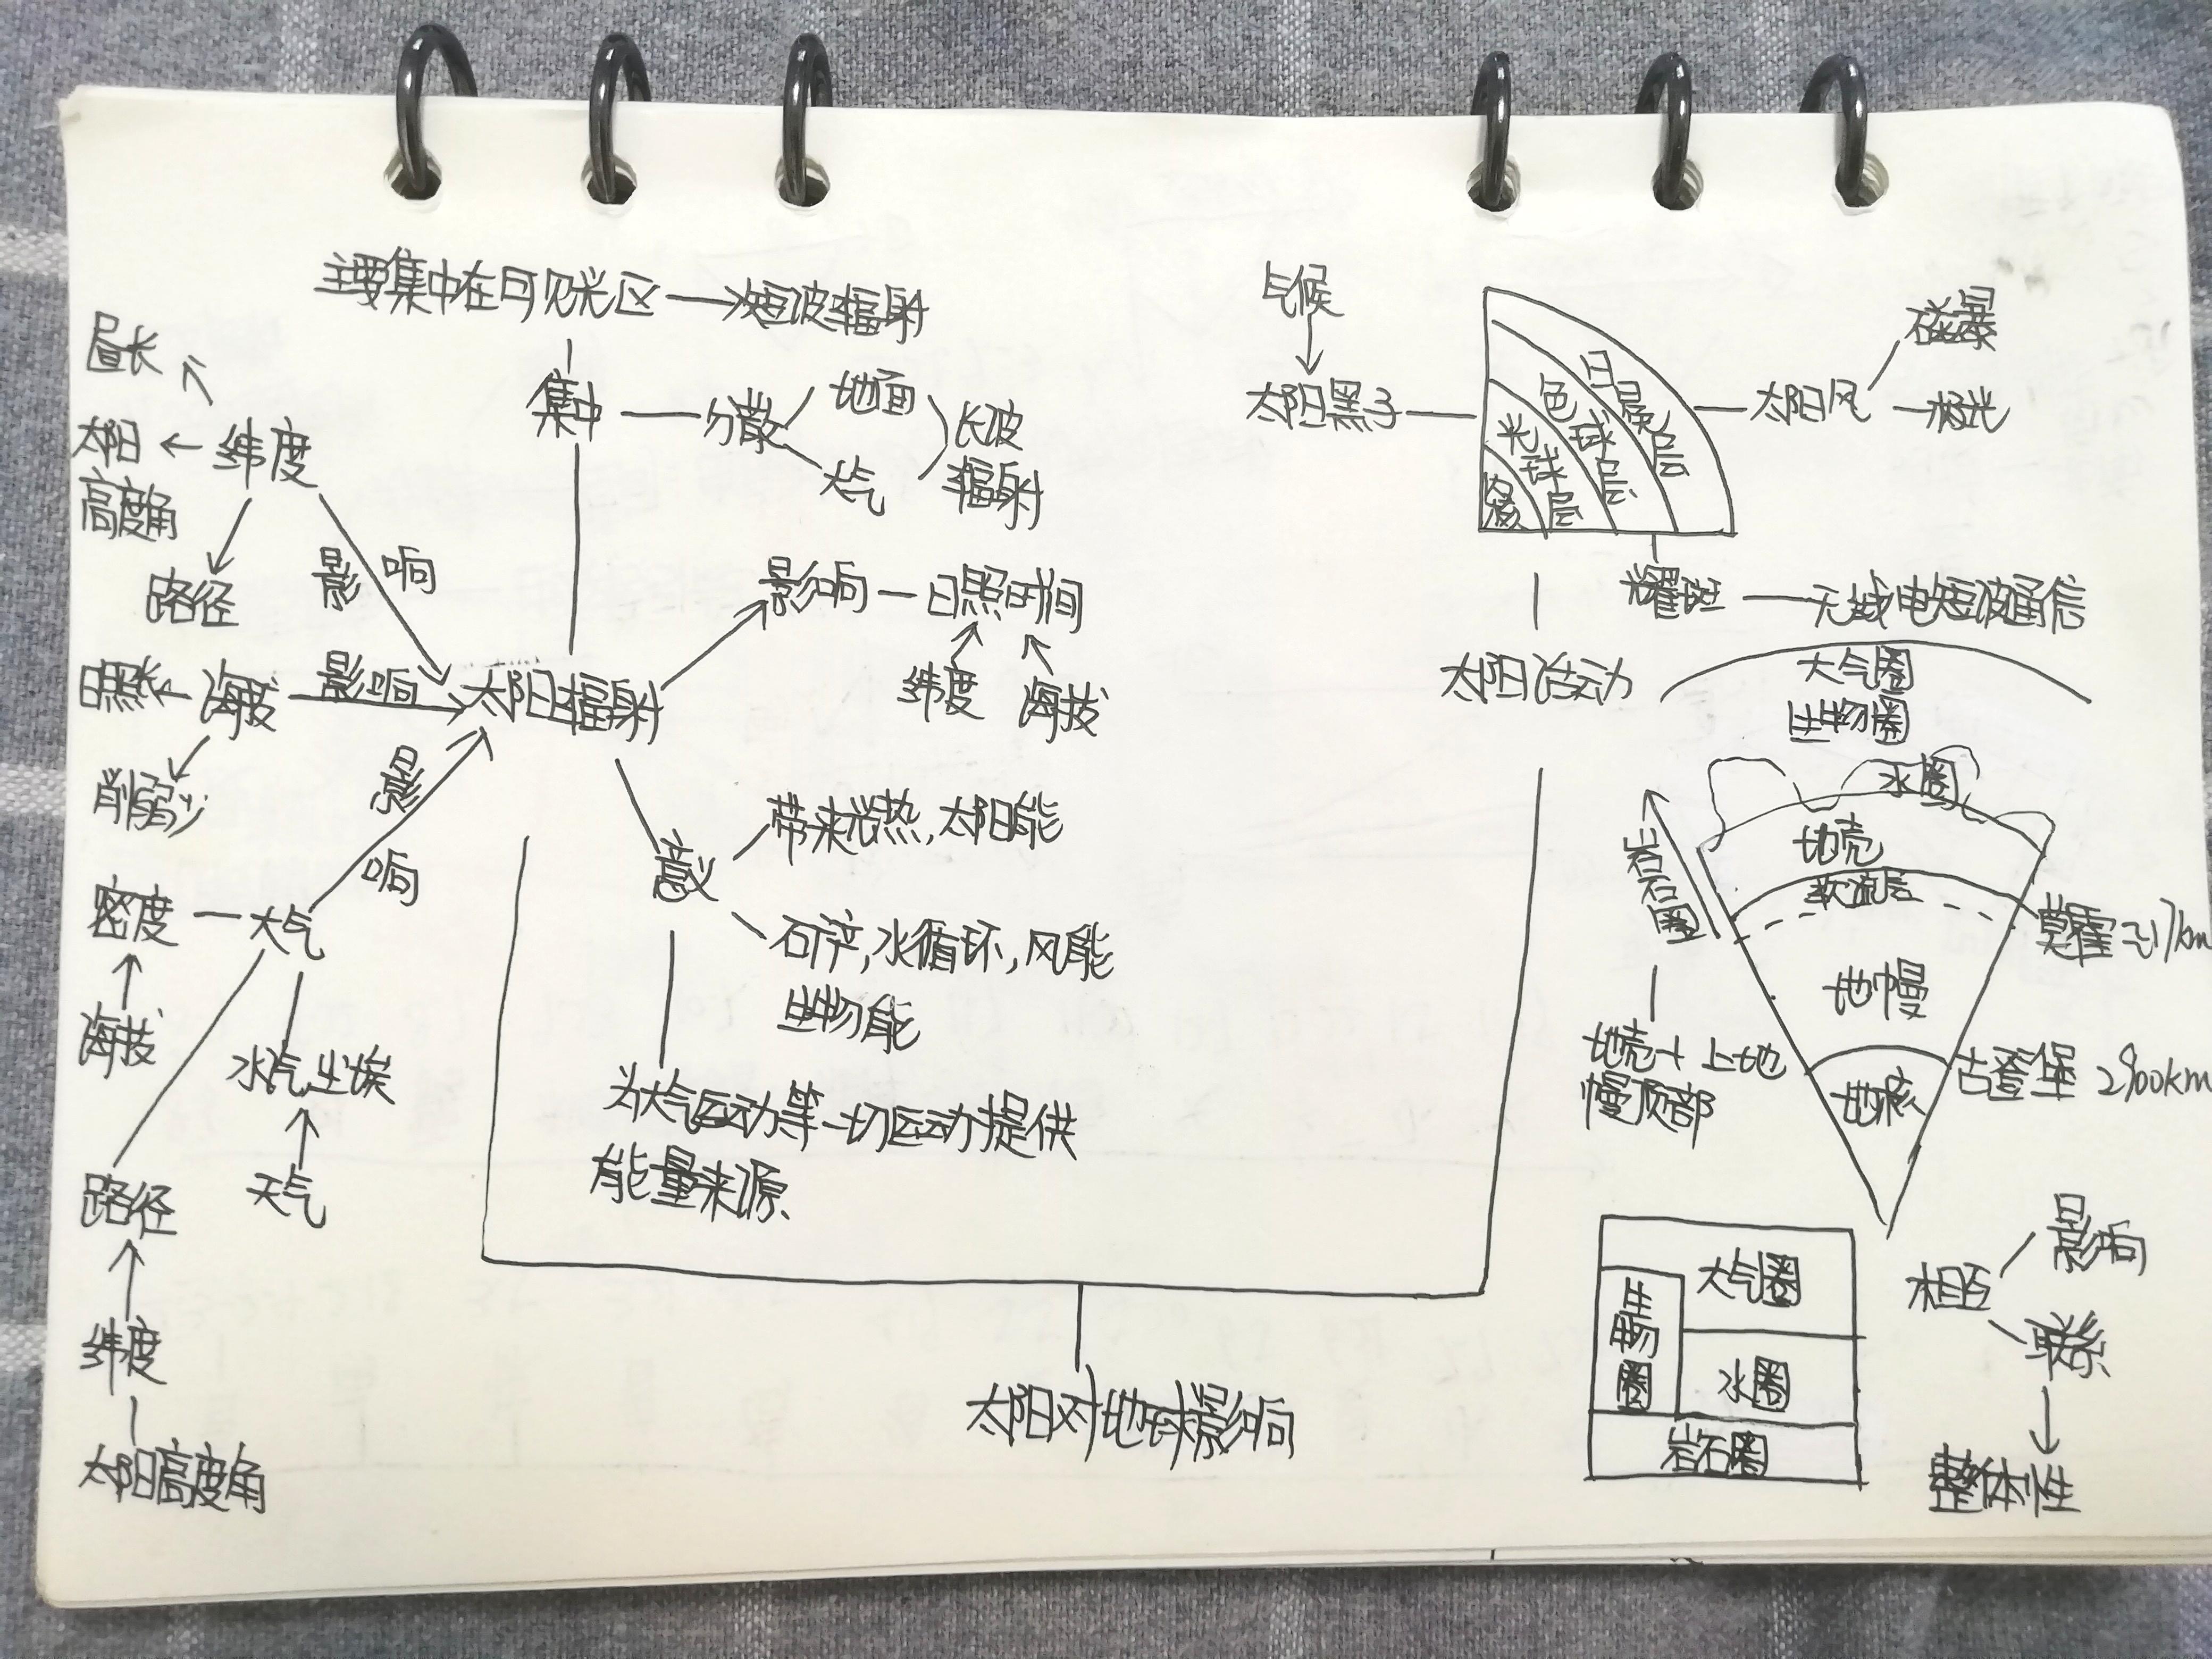 主要集中在可见光区→短波辐射
昼长
集中
分散
地面
大气
长波
辐射
太阳
高度角
纬度
路径
影响
影响
日照时间
纬度
海拔
日照长
海拔
影响
太阳辐射
削弱少
影响
意义
带来光热,太阳能
密度
大气
水循环,风能
生物能
海拔
水汽尘埃
天气
为大气运动等一切运动提供
能量来源
路径
纬度
太阳高度角
太阳对地球影响
气候
太阳黑子
日冕层
色球层
光球层
核
太阳风
磁暴
极光
耀斑
无线电短波通信
太阳活动
大气圈
生物圈
水圈
地壳
软流层
岩石圈
莫霍
17km
地幔
地壳+上地
幔顶部
古登堡 2900km
地核
大气圈
生物圈
水圈
岩石圈
相互
影响
联系
整体性